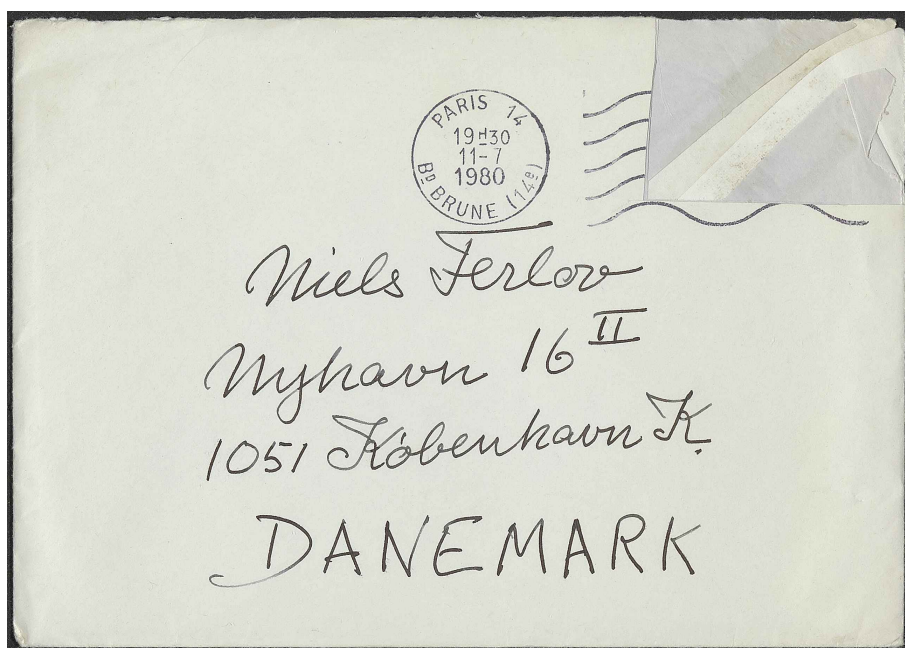 PARIS 14
19H30
11-7
1980
BD BRUNE (14e)
Niels Ferlov
Nyhavn 16 II
1051 København K.
DANEMARK